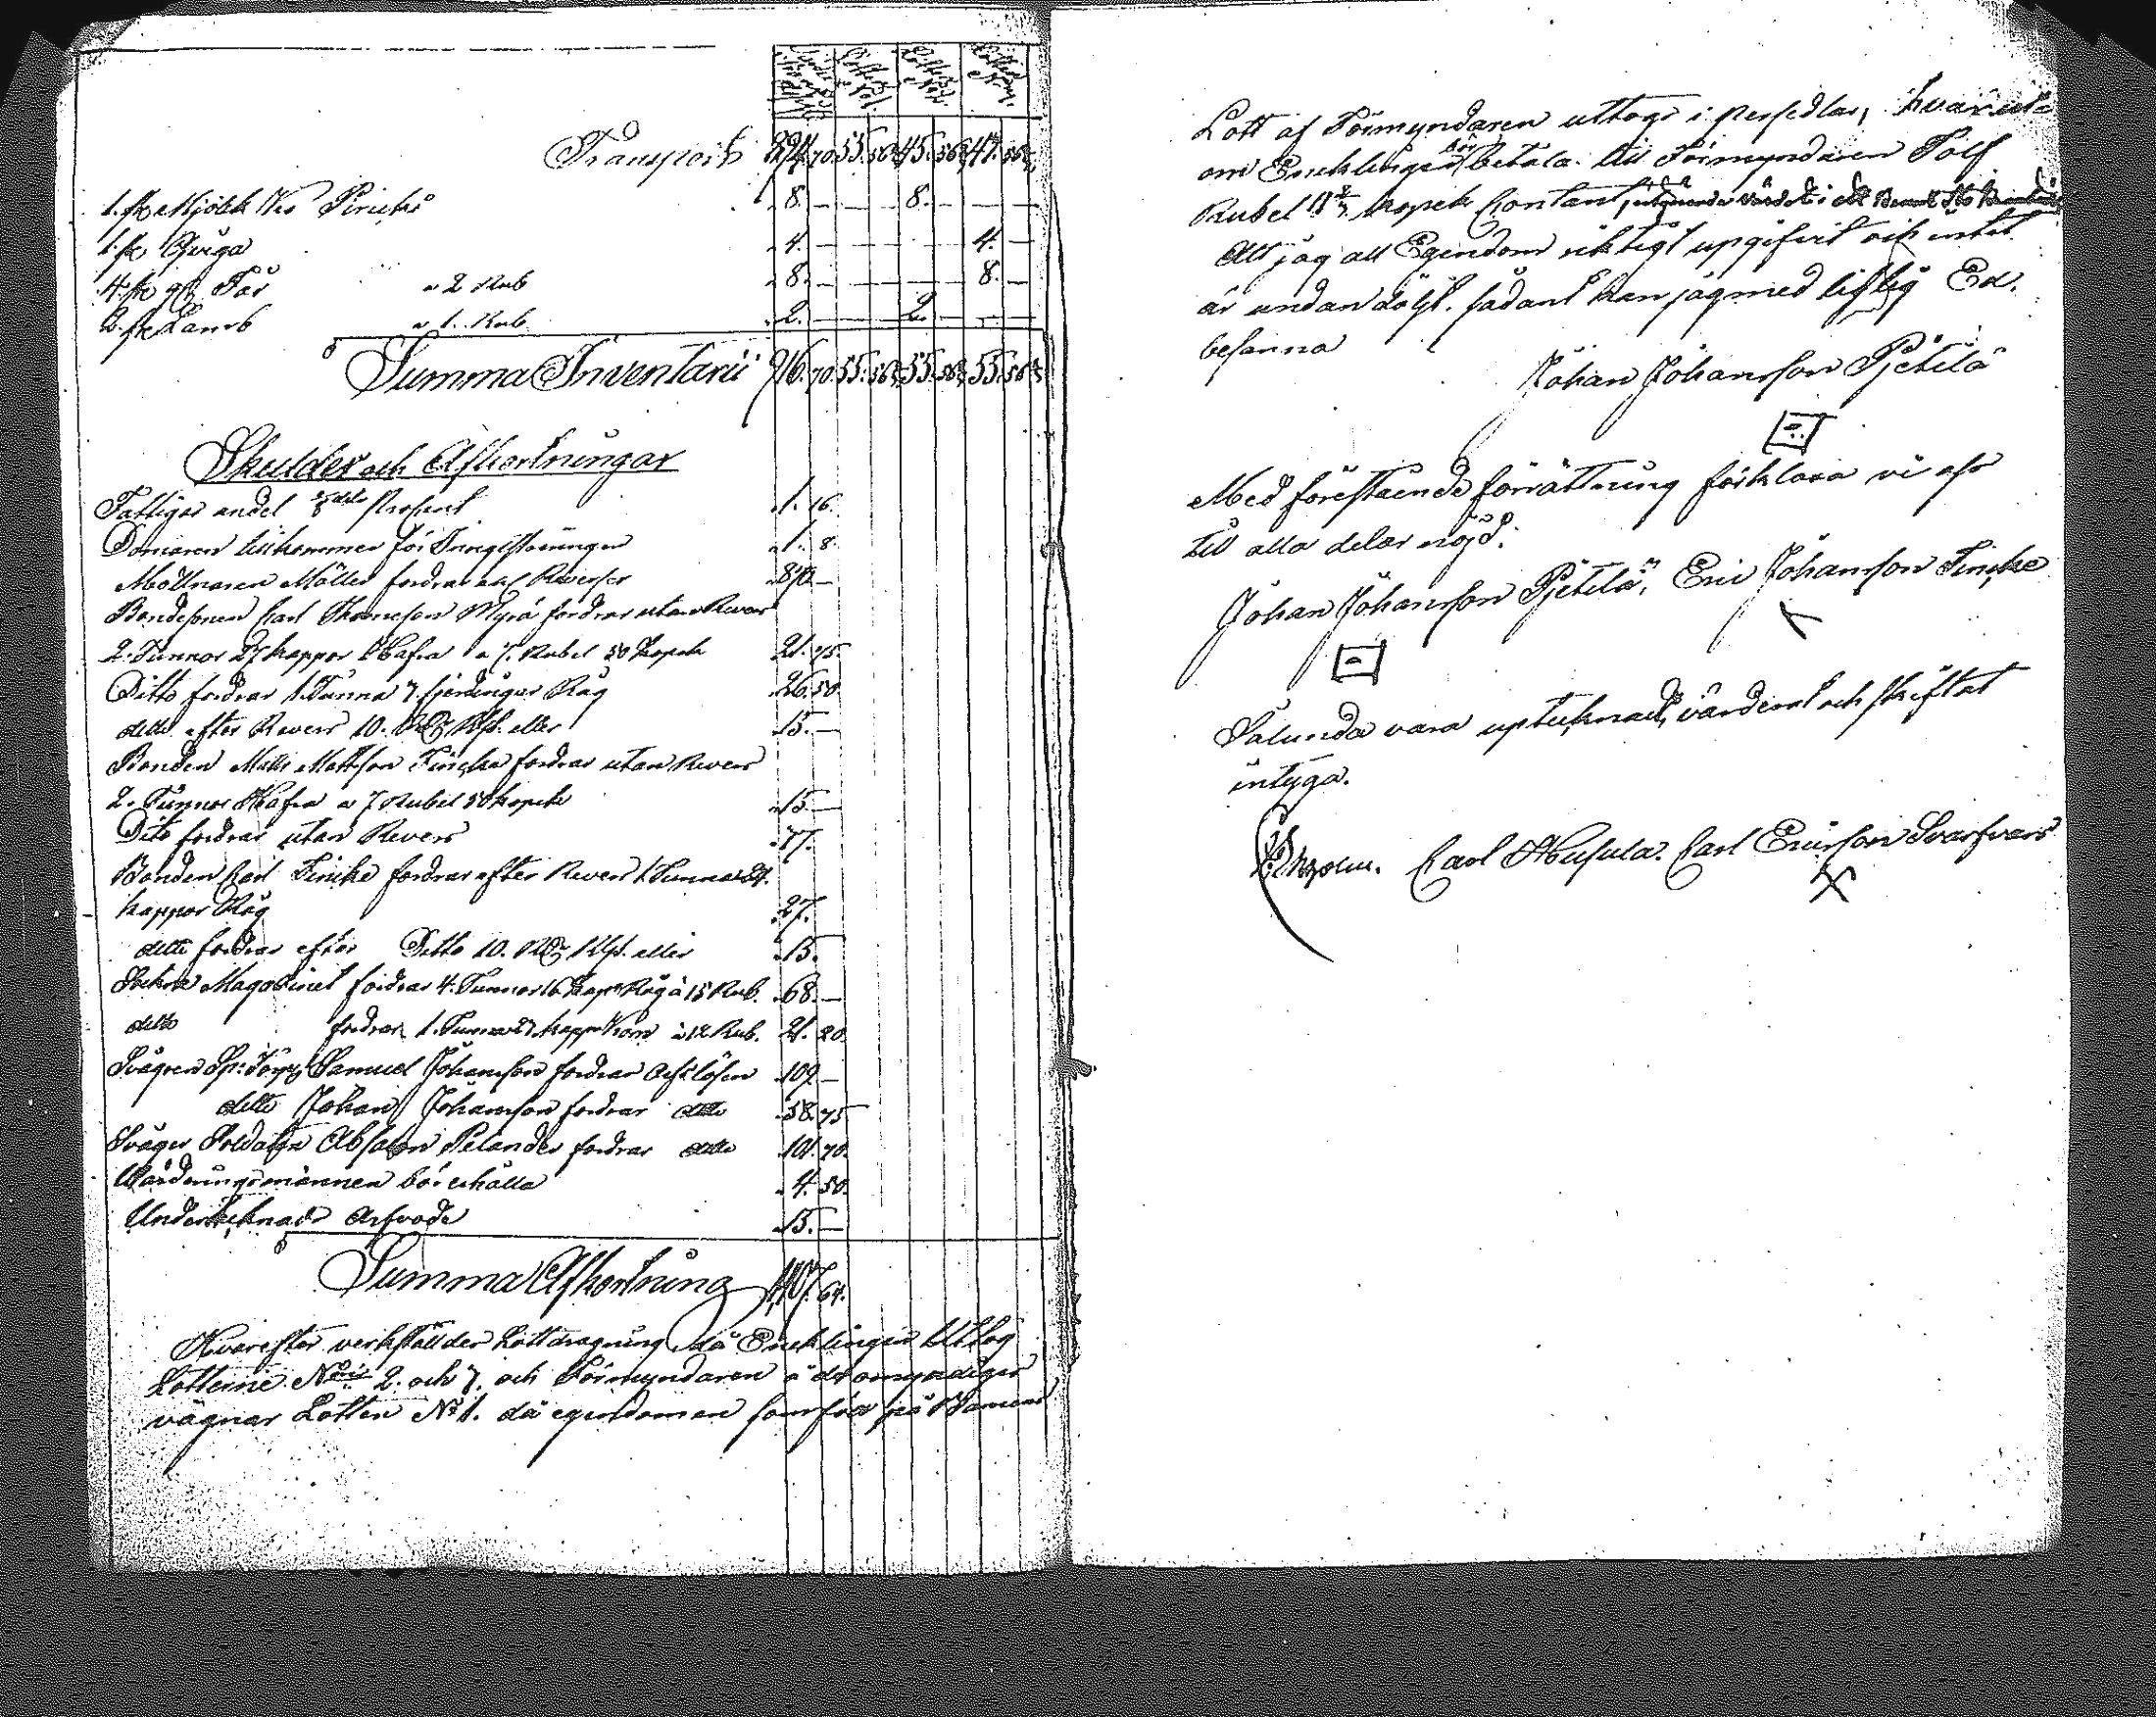 Lotten No 1. Lotten No 2. Lotten No 3.
Transport 894. 70. 55. 56 45. 56 47. 56
1. st. Mjölk Ko Piricki 8. — 8. —
1. st. Qviga 4. — 4. —
4. st. gl. Får a 2 Rub 8. — 8. —
2. st. Lamb a 1. Rub. 2. — 2. —
Summa Inventarii 916. 70. 55. 56 55. 56 55. 56
Skulder och Afkortningar
Fattigas andel 1/8 dels Prosent 1. 16.
Domaren tillkommer för Ingisstreringen 1. 8.
Möllnaren Möller fordrar efter Reverser
Bondesonen Carl Thomeson Myrä fordrar utan Revers
2. Tunnor 27 kappor Hafra a 7. Rubel 50 kopek 21. 75.
Ditto fordrar 1. Tunna 7. fjerdingar Råg 26. 50.
ditto efter Revers 10. Rsp. eller 15. —
Bonden Matts Mattson Fincke fordrar utan Revers
2. Tunnor Hafra a 7 Rubel 50 kopek 15. —
Dito fordrar utan Revers 77. —
Bonden Carl Fincke fordrar efter Revers 1. Tunna 24.
kappor Råg 27.
ditto fordrar efter Ditto 10. eller 15.
Sockne Magasinet fordrar 4. Tunnor 16 kapr Råg à 15 Rub. 68. —
ditto fordrar 1. Tunna 23 kappr Korn à 12 Rub. 21. 20.
Svågren Samuel Johansson fordrar Arfslösen 109. —
ditto Johan Johansson fordrar ditto 58. 75
Svåger Soldaten Absalon Pelander fordrar ditto 101. 70.
Wärderingsmännen bör erhålla 4. 50.
Undertecknads Arfvode 15. —
Summa Afkortning 64.
Hvarefter verkställdes Lottdragning, då Enklingen uttog
Lotterne Noris 2. och 3. och Förmyndaren å de omyndigas
vägnar Lotten No 1. då egendomen som föll på Barnens
Lott af Förmyndaren uttogs i persedlar, hvarutom
om Enklingen bör betala till Förmyndaren Tolf
Rubel kopek Contant,
Att jag all Egendom riktigt upgifvit och intet
är undandöljt. sådant kan jag med liflig Ed.
besanna
Johan Johansson Pjetilä
Med förestående förrättning förklara vi oss
till alla delar nöjd.
Johan Johansson Pjetilä, Eric Johansson Fincke
Sålunda vara uptecknadt, värderat och skiftat
intyga.
Ekholm. Carl Husula. Carl Ericson Svarfvars